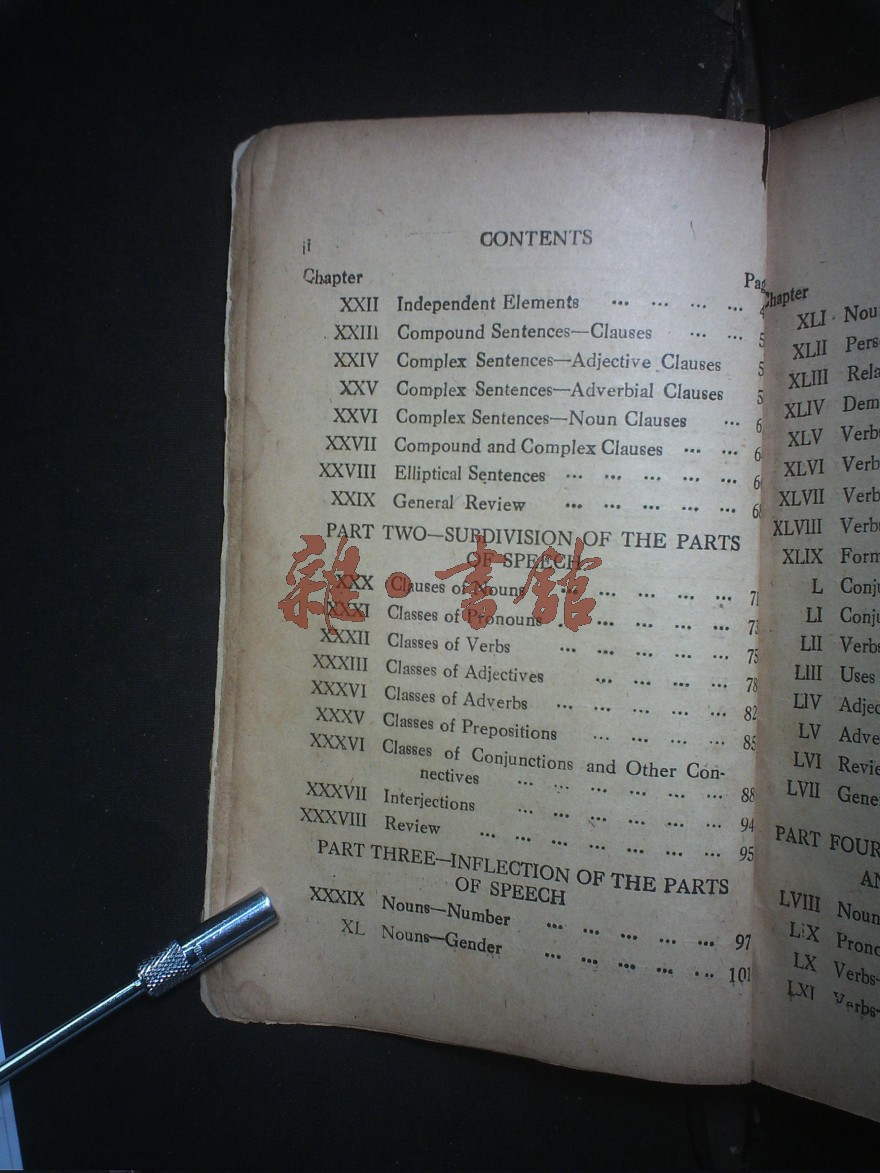 ii
CONTENTS
Chapter
Pag
XXII Independent Elements ... ... ... ... 4
XXIII Compound Sentences—Clauses ... ... 5
XXIV Complex Sentences—Adjective Clauses 5
XXV Complex Sentences—Adverbial Clauses 5
XXVI Complex Sentences—Noun Clauses ... 6
XXVII Compound and Complex Clauses ... ... 6
XXVIII Elliptical Sentences ... ... ... ... ... 66
XXIX General Review ... ... ... ... ... 68
PART TWO—SURDIVISION OF THE PARTS
OF SPEECH
XXX Clauses of Nouns ... ... ... ... ... 71
XXXI Classes of Pronouns ... ... ... ... ... 73
XXXII Classes of Verbs ... ... ... ... ... 75
XXXIII Classes of Adjectives ... ... ... ... 78
XXXVI Classes of Adverbs ... ... ... ... ... 82
XXXV Classes of Prepositions ... ... ... ... 85
XXXVI Classes of Conjunctions and Other Con-
nectives ... ... ... ... ... ... 88
XXXVII Interjections ... ... ... ... ... ... 94
XXXVIII Review ... ... ... ... ... ... ... 95
PART THREE—INFLECTION OF THE PARTS
OF SPEECH
XXXIX Nouns—Number ... ... ... ... ... 97
XL Nouns—Gender ... ... ... ... ... 101
雜·書館
Chapter
XLI Nou
XLII Pers
XLIII Rela
XLIV Dem
XLV Verb
XLVI Verb
XLVII Verb
XLVIII Verb
XLIX Form
L Conju
LI Conju
LII Verbs
LIII Uses
LIV Adjec
LV Adve
LVI Revie
LVII Gene
PART FOUR
AN
LVIII Noun
LIX Prono
LX Verbs-
LXI Verbs-